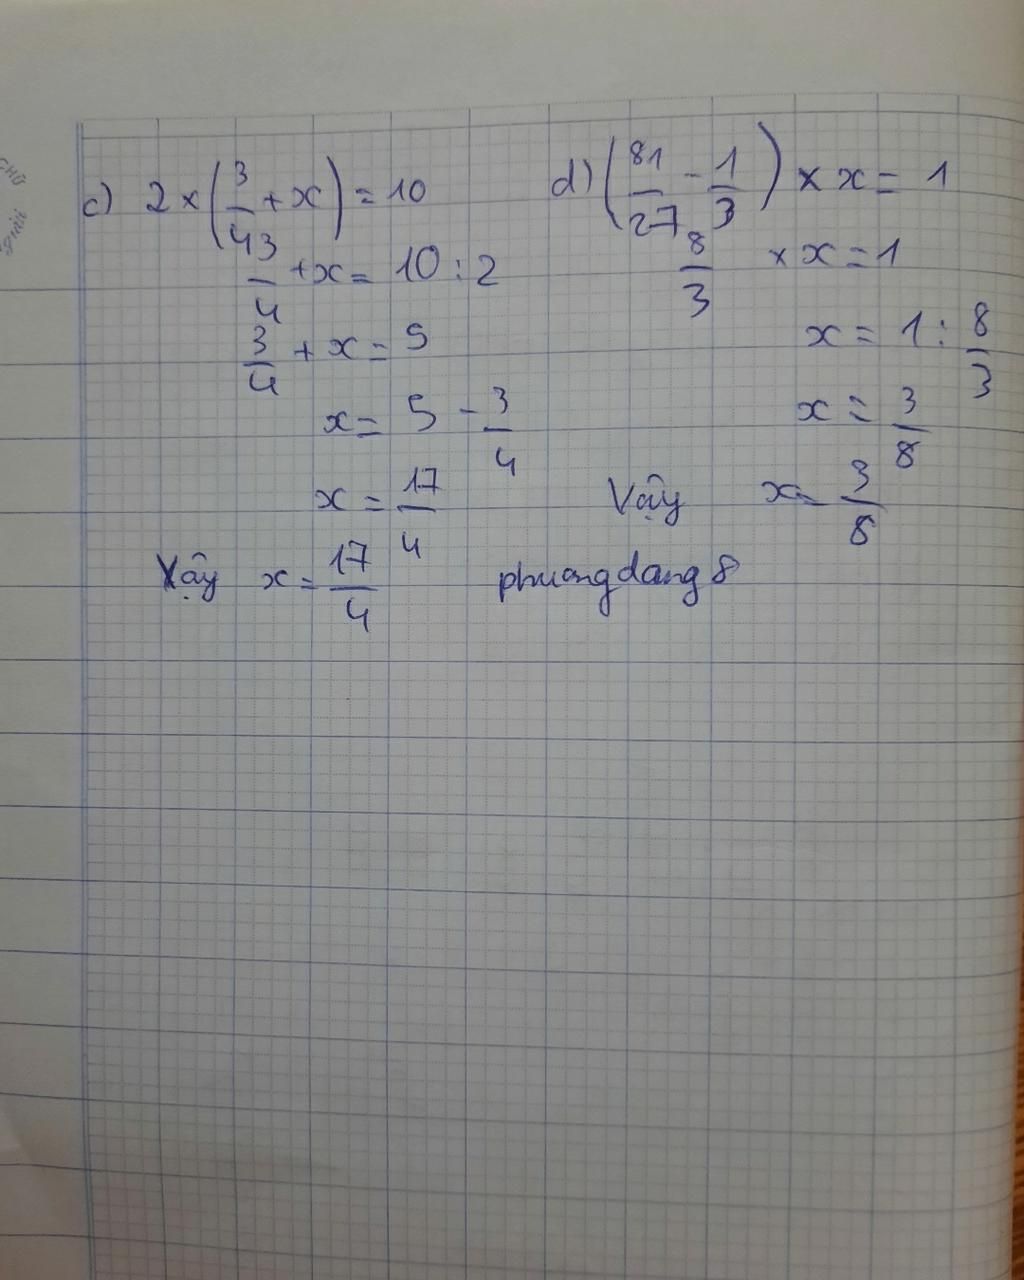 c) 2 × (3/4 + x) = 10
3/4 + x = 10 : 2
3/4 + x = 5
x = 5 - 3/4
x = 17/4
Vậy x = 17/4
d) (81/27 - 1/3) × x = 1
8/3 × x = 1
x = 1 : 8/3
x = 3/8
Vậy x = 3/8
phuongdang8
CHỮ